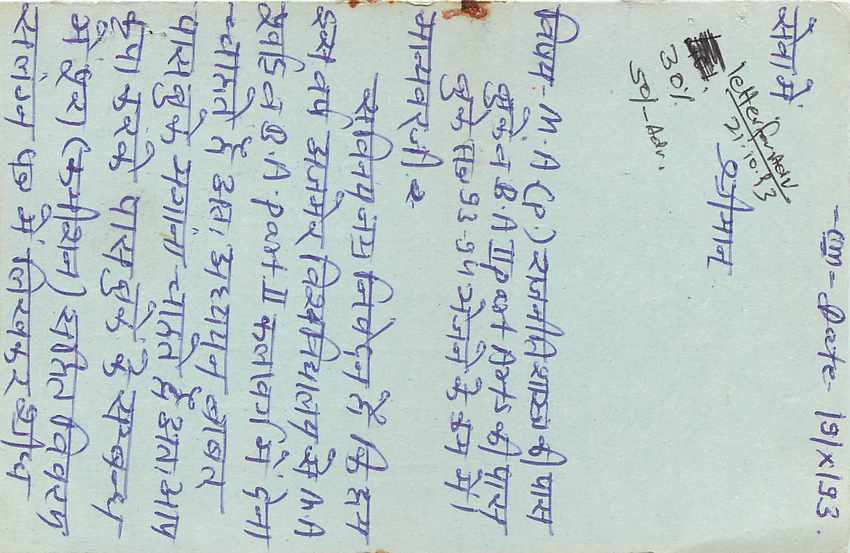 सेवा में
-om- Date- 19/x/93.
letter for Adv
21.10.93
30%
50/- Adv.
श्रीमान्,
विषय- M.A (P.) राजनीति शास्त्र की पास
बुके व B A II part Arts की पास
बुके सत्र 93-94 भेजने के क्रम में।
मान्यवर जी,
सविनय नम्र निवेदन है कि हम
इस वर्ष अजमेर विश्वविद्यालय से M.A
प्रिवि व B.A. part II कला वर्ग में देना
चाहते है अतः अध्ययन बाबत
पास बुके मंगाना चाहते है अतः आप
कृपा करके पास बुके के सम्बन्ध
में छुट (कमीशन) सहित विवरण
संलग्न पत्र में लिखकर शीघ्र